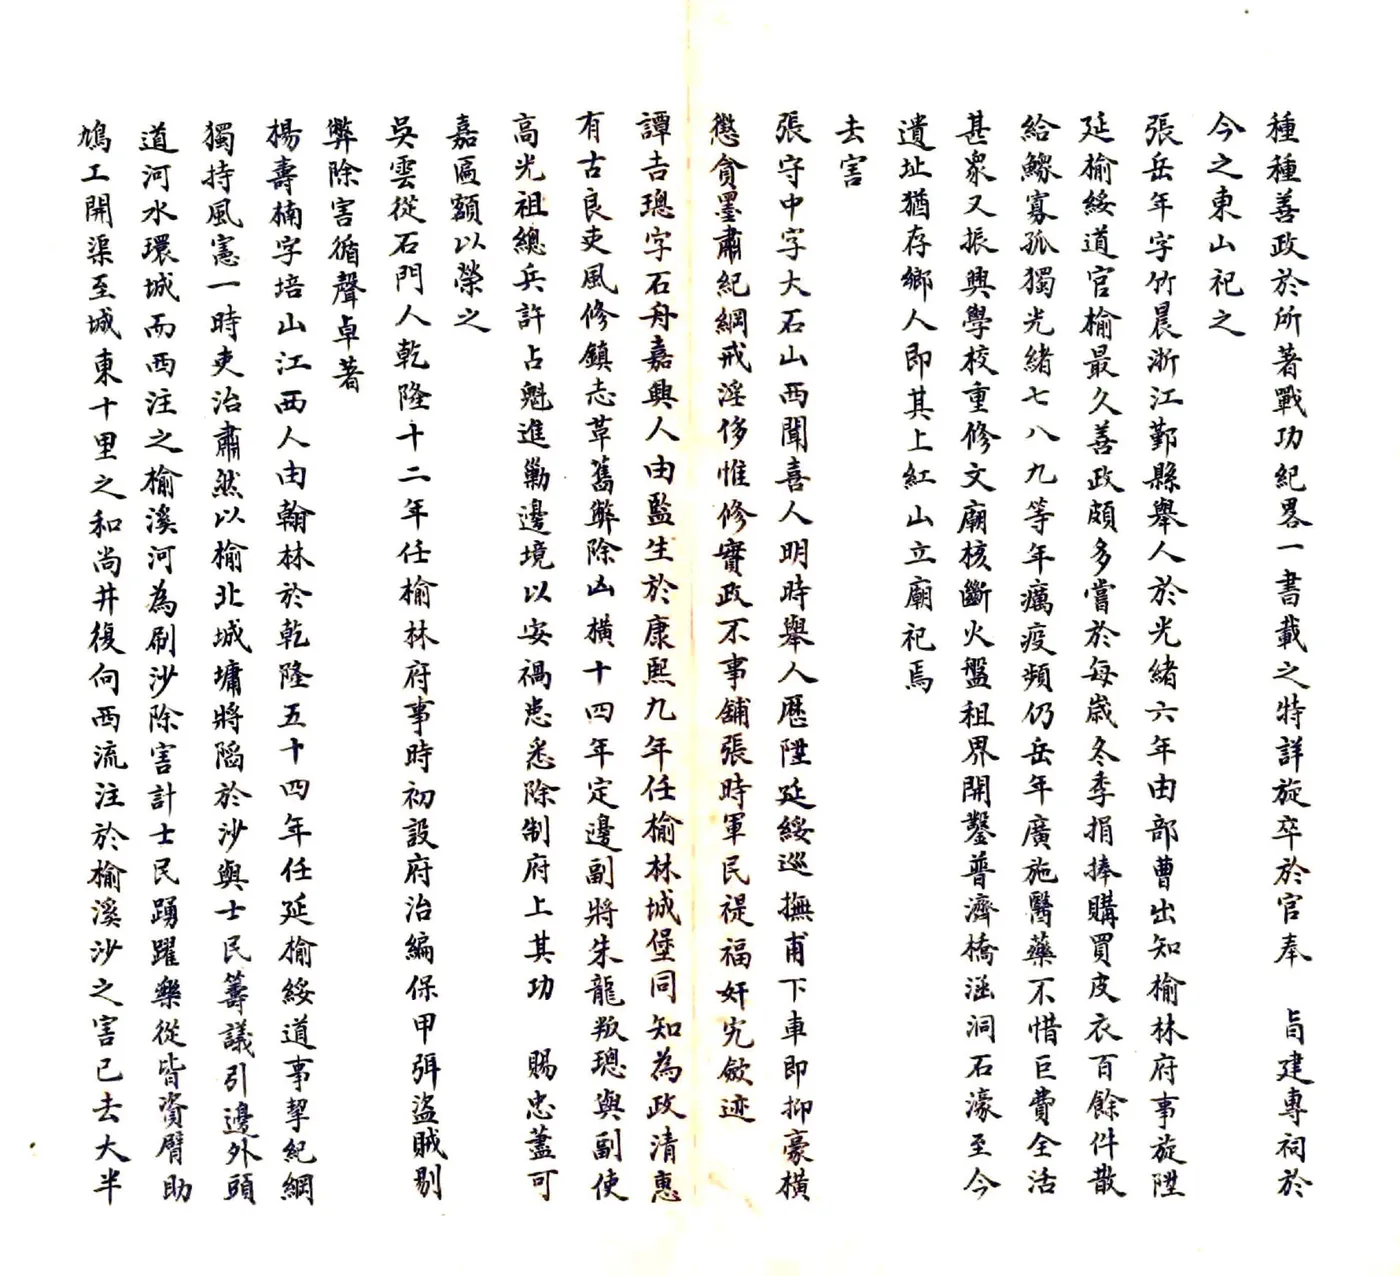 種種善政於所著戰功紀畧一書載之特詳旋卒於官奉　旨建專祠於
今之東山祀之
張岳年字竹晨浙江鄞縣舉人於光緒六年由部曹出知榆林府事旋陞
延榆綏道官榆最久善政頗多嘗於每歲冬季捐捧購買皮衣百餘件散
給鰥寡孤獨光緒七八九等年癘疫頻仍岳年廣施醫藥不惜巨費全活
甚眾又振興學校重修文廟核斷火盤租界開鑿普濟橋涵洞石濠至今
遺址猶存鄉人即其上紅山立廟祀焉
去害
張守中字大石山西聞喜人明時舉人歷陞延綏巡撫甫下車即抑豪橫
懲貪墨肅紀綱戒淫侈惟修實政不事舖張時軍民禔福奸宄斂迹
譚吉璁字石舟嘉興人由監生於康熙九年任榆林城堡同知為政清惠
有古良吏風修鎮志革舊弊除凶橫十四年定邊副將朱龍叛璁與副使
高光祖總兵許占魁進勦邊境以安禍患悉除制府上其功　賜忠藎可
嘉匾額以榮之
吳雲從石門人乾隆十二年任榆林府事時初設府治編保甲弭盜賊剔
弊除害循聲卓著
楊壽楠字培山江西人由翰林於乾隆五十四年任延榆綏道事挈紀綱
獨持風憲一時吏治肅然以榆北城墉將陷於沙與士民籌議引邊外頭
道河水環城而西注之榆溪河為刷沙除害計士民踴躍樂從皆資臂助
鳩工開渠至城東十里之和尚井復向西流注於榆溪沙之害已去大半